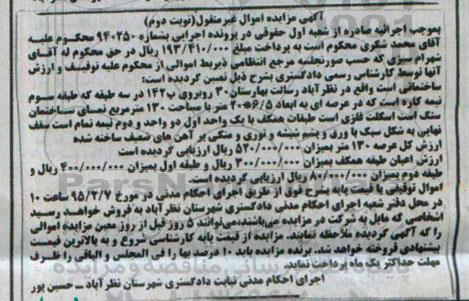 آگهی مزایده اموال غیر منقول(نوبت دوم)
بموجب اجرائیه صادره از شعبه اول حقوقی در پرونده اجرایی بشماره ۹۴۰۲۵۰ محکوم علیه
آقای محمد شکری محکوم است به پرداخت مبلغ ۱۹۳/۴۱۰/۰۰۰ ریال در حق محکوم له آقای
شهرام سیری که حسب صورتجلسه مرجع انتظامی ذیربط اموالی از محکوم علیه توقیف و ارزش
آنها توسط کارشناس رسمی دادگستری بشرح ذیل تعیین گردیده است:
ساختمانی است واقع در نظرآباد رسالت بهارستان ۳۰ روبروی پ۱۴۲ در سه طبقه که طبقه سوم
نیمه کاره است که در عرصه ای به ابعاد ۶/۵*۲۰ متر با مساحت ۱۳۰ مترمربع نمای ساختمان
سنگ است اسکلت فلزی است طبقات همکف با یک واحد اول دو واحد و دوم نیمه تمام است سقف
نهایی به شکل سبک با ورق و پشم شیشه و توری و متکی بر آهن های شعف ساخته شده
ارزش کل عرصه ۱۳۰ متر بمیزان ۵۲۰/۰۰۰/۰۰۰ ریال ارزیابی گردیده است
ارزش اعیان طبقه همکف بمیزان ۳۰۰/۰۰۰/۰۰۰ ریال و طبقه اول بمیزان ۴۰۰/۰۰۰/۰۰۰ ریال و
طبقه دوم بمیزان ۸۰/۰۰۰/۰۰۰ ریال ارزیابی گردیده است.
اموال توقیفی با قیمت پایه بشرح فوق از طریق اجرای احکام مدنی در مورخ ۹۵/۲/۷ ساعت ۱۰
در محل دفتر شعبه اجرای احکام مدنی دادگستری شهرستان نظرآباد به فروش خواهد رسید
اشخاصی که مایل به شرکت در مزایده می‌باشند،می‌توانند ۵ روز قبل از روز معین مزایده اموالی
را که آگهی گردیده ملاحظه نمایند. مزایده از قیمت پایه کارشناسی شروع و به بالاترین قیمت
پیشنهادی فروخته خواهد شد. برنده مزایده باید ۱۰ درصد بها را فی المجلس و الباقی را ظرف
مهلت حداکثر یک ماه پرداخت نماید.
اجرای احکام مدنی نیابت دادگستری شهرستان نظرآباد ــ حسین پور